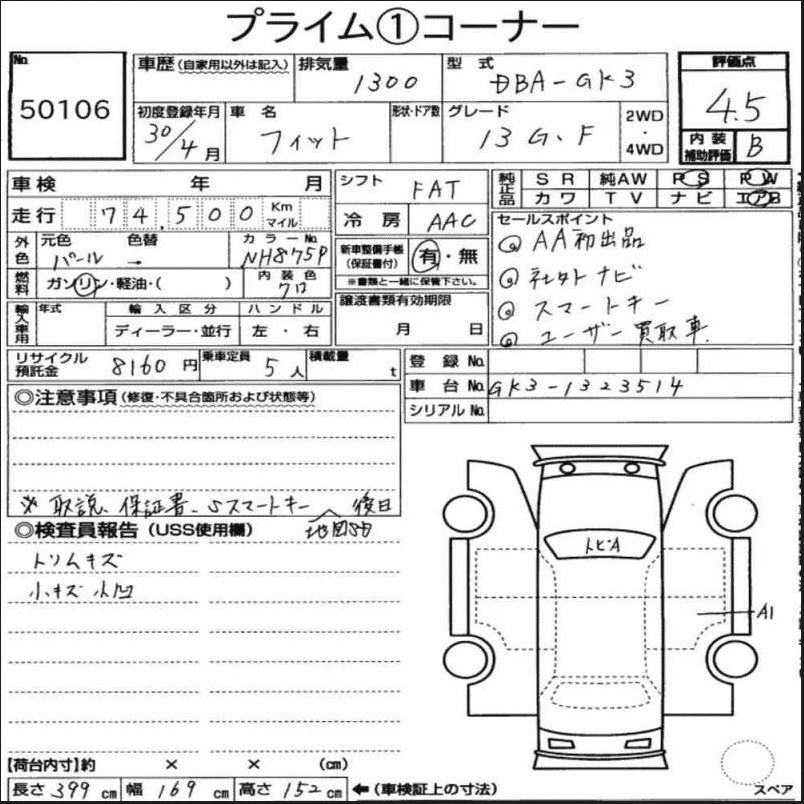 プライム①コーナー
No. 50106
車歴(自家用以外は記入) 排気量 1300 型式 DBA-GK3
評価点 4.5
初度登録年月 30/4月 車名 フィット 形状・ドア数 グレード 13G.F 2WD・4WD
内装補助評価 B
車検 年 月
走行 74,500 Km マイル
シフト FAT
冷房 AAC
純正品 SR 純AW PS PW
カワ TV ナビ エアB
外色 元色 パール 色替 → カラーNo. NH875P
燃料 ガソリン・軽油・( ) 内装色 クロ
新車整備手帳(保証書付) 有・無
※書類と一緒に保管下さい。
セールスポイント
AA初出品
社外ナビ
スマートキー
ユーザー買取車
輸入車用 年式 輸入区分 ディーラー・並行 ハンドル 左・右
譲渡書類有効期限
月 日
リサイクル預託金 8160円 乗車定員 5人 積載量 t
登録No.
車台No. GK3-1323514
シリアルNo.
◎注意事項(修復・不具合箇所および状態等)
※取説、保証書、Sスマートキー 後日
◎検査員報告(USS使用欄)
トリムキズ
小キズ 小凹
トビA
A1
【荷台内寸】約 × × (cm)
長さ399cm 幅169cm 高さ152cm ←(車検証上の寸法)
スペア